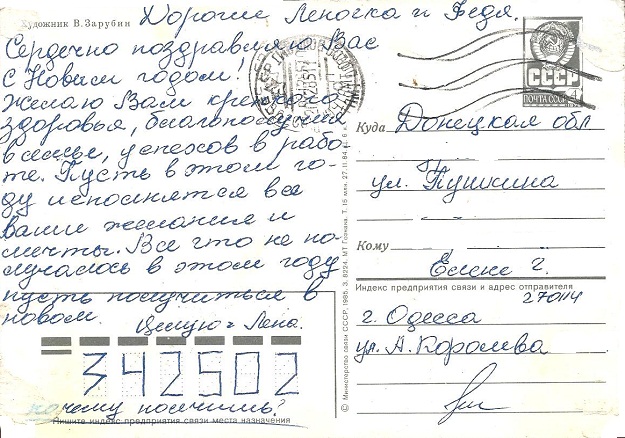 Художник В. Зарубин
Дорогие Леночка и Федя.
Сердечно поздравляю Вас
с Новым годом!
Желаю Вам крепкого
здоровья, благополучия
в семье, успехов в рабо-
те. Пусть в этом го-
ду исполнятся все
ваши желания и
мечты. Все что не по-
лучалось в этом году
пусть получиться в
новом.
Целую Лена.
342502
почему молчишь?
Пишите индекс предприятия связи места назначения
© Министерство связи СССР, 1985. З. 8224. МТ Гознака. Т. 15 млн. 27.11.84. Ц. 6 к.
СССР
ПОЧТА СССР
4
Куда Донецкая обл
ул. Пушкина
Кому
Елене Г.
Индекс предприятия связи и адрес отправителя
270114
г. Одесса
ул. А. Королева